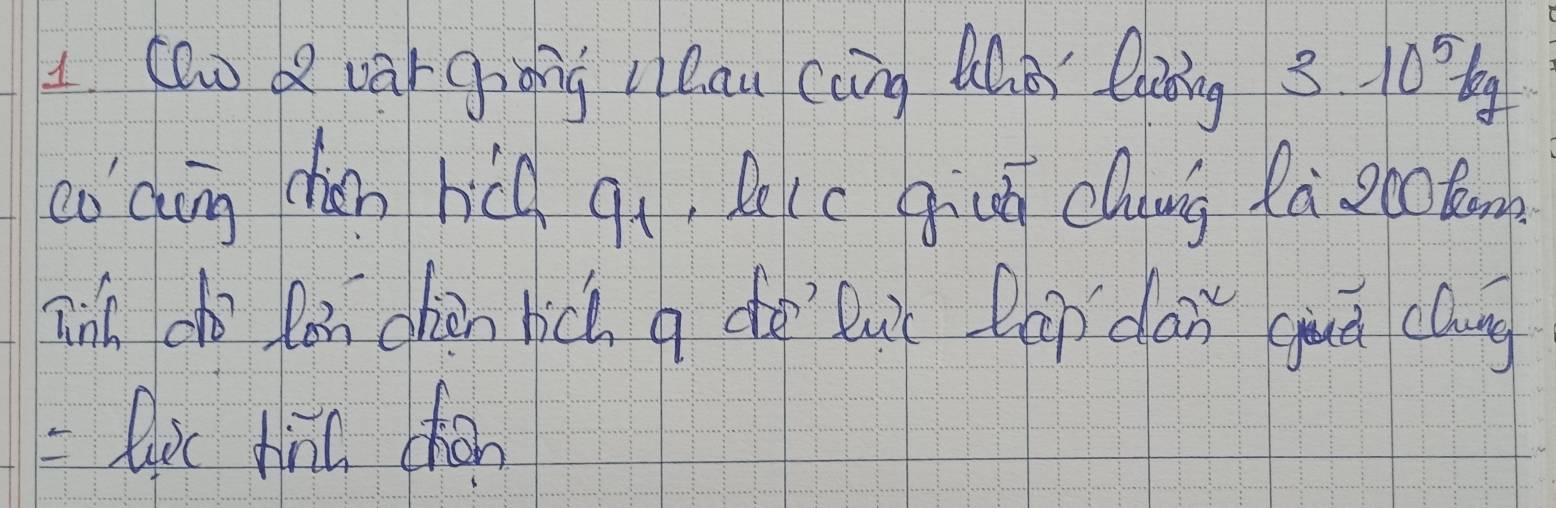 1. Cho 2 vật giống nhau cùng khối lượng 3. 10⁵ kg
có cùng điện tích q₁, giữa chúng là 200 km.
Tính độ lớn điện tích q để lực hấp dẫn giữa chúng
= lực tĩnh điện